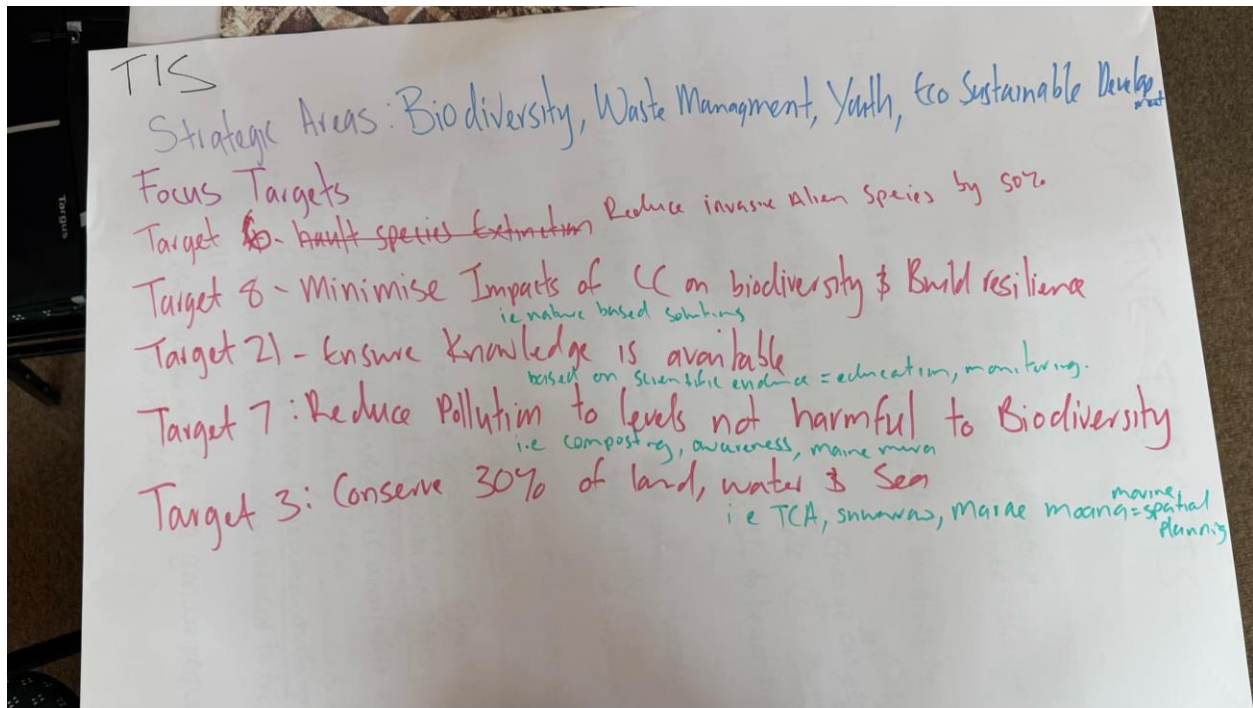 TIS
Strategic Areas: Biodiversity, Waste Managment, Youth, Eco Sustainable Development
Focus Targets
Target 6 - hault species Extinction Reduce invasive Alien Species by 50%
Target 8 - Minimise Impacts of CC on biodiversity & Build resilience
ie nature based solutions
Target 21 - Ensure Knowledge is available
based on scientific evidence = education, monitoring.
Target 7: Reduce Pollution to levels not harmful to Biodiversity
i.e composting, awareness,
Target 3: Conserve 30% of land, water & Sea
i e TCA, Marae moana = marine spatial planning
Targus